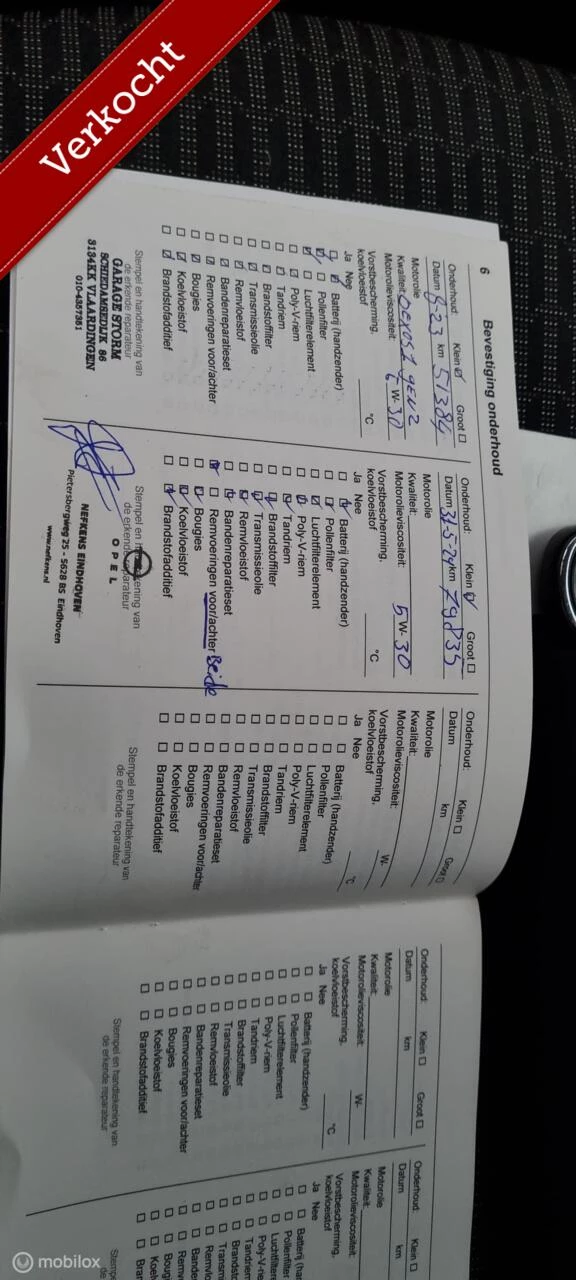 Verkocht
6
Bevestiging onderhoud
Onderhoud: Klein ☑ Groot ☐
Datum 6-23 km 51384
Motorolie
Kwaliteit: dexos1 gen2
Motorolieviscositeit: 5 W- 30
Vorstbescherming,
koelvloeistof °C
Ja Nee
Batterij (handzender)
Pollenfilter
Luchtfilterelement
Poly-V-riem
Tandriem
Brandstoffilter
Transmissieolie
Remvloeistof
Bandenreparatieset
Remvoeringen voor/achter
Bougies
Koelvloeistof
Brandstofadditief
Stempel en handtekening van
de erkende reparateur
GARAGE STORM
SCHIEDAMSEDIJK 86
3134KK VLAARDINGEN
010-4357381
Onderhoud: Klein ☑ Groot ☐
Datum 31-5-24 km 79835
Motorolie
Kwaliteit:
Motorolieviscositeit: 5 W- 30
Vorstbescherming,
koelvloeistof °C
Ja Nee
Batterij (handzender)
Pollenfilter
Luchtfilterelement
Poly-V-riem
Tandriem
Brandstoffilter
Transmissieolie
Remvloeistof
Bandenreparatieset
Remvoeringen voor/achter Beide
Bougies
Koelvloeistof
Brandstofadditief
Stempel en handtekening van
de erkende reparateur
OPEL
NEFKENS EINDHOVEN
Pietersbergweg 25 - 5628 BS Eindhoven
www.nefkens.nl
Onderhoud: Klein ☐ Groot ☐
Datum km
Motorolie
Kwaliteit:
Motorolieviscositeit: W-
Vorstbescherming,
koelvloeistof °C
Ja Nee
Batterij (handzender)
Pollenfilter
Luchtfilterelement
Poly-V-riem
Tandriem
Brandstoffilter
Transmissieolie
Remvloeistof
Bandenreparatieset
Remvoeringen voor/achter
Bougies
Koelvloeistof
Brandstofadditief
Stempel en handtekening van
de erkende reparateur
Onderhoud: Klein ☐ Groot ☐
Datum km
Motorolie
Kwaliteit:
Motorolieviscositeit: W-
Vorstbescherming,
koelvloeistof °C
Ja Nee
Batterij (handzender)
Pollenfilter
Luchtfilterelement
Poly-V-riem
Tandriem
Brandstoffilter
Transmissieolie
Remvloeistof
Bandenreparatieset
Remvoeringen voor/achter
Bougies
Koelvloeistof
Brandstofadditief
Stempel en handtekening van
de erkende reparateur
Onderhoud: Klein ☐
Datum km
Motorolie
Kwaliteit:
Motorolieviscositeit:
Vorstbescherming,
koelvloeistof
Ja Nee
Batterij (hand
Pollenfilter
Luchtfilterele
Poly-V-riem
Tandriem
Brandsto
Transmis
Remvlo
Banden
Remvo
Bougi
Koelv
Bra
Stemp
de
mobilox